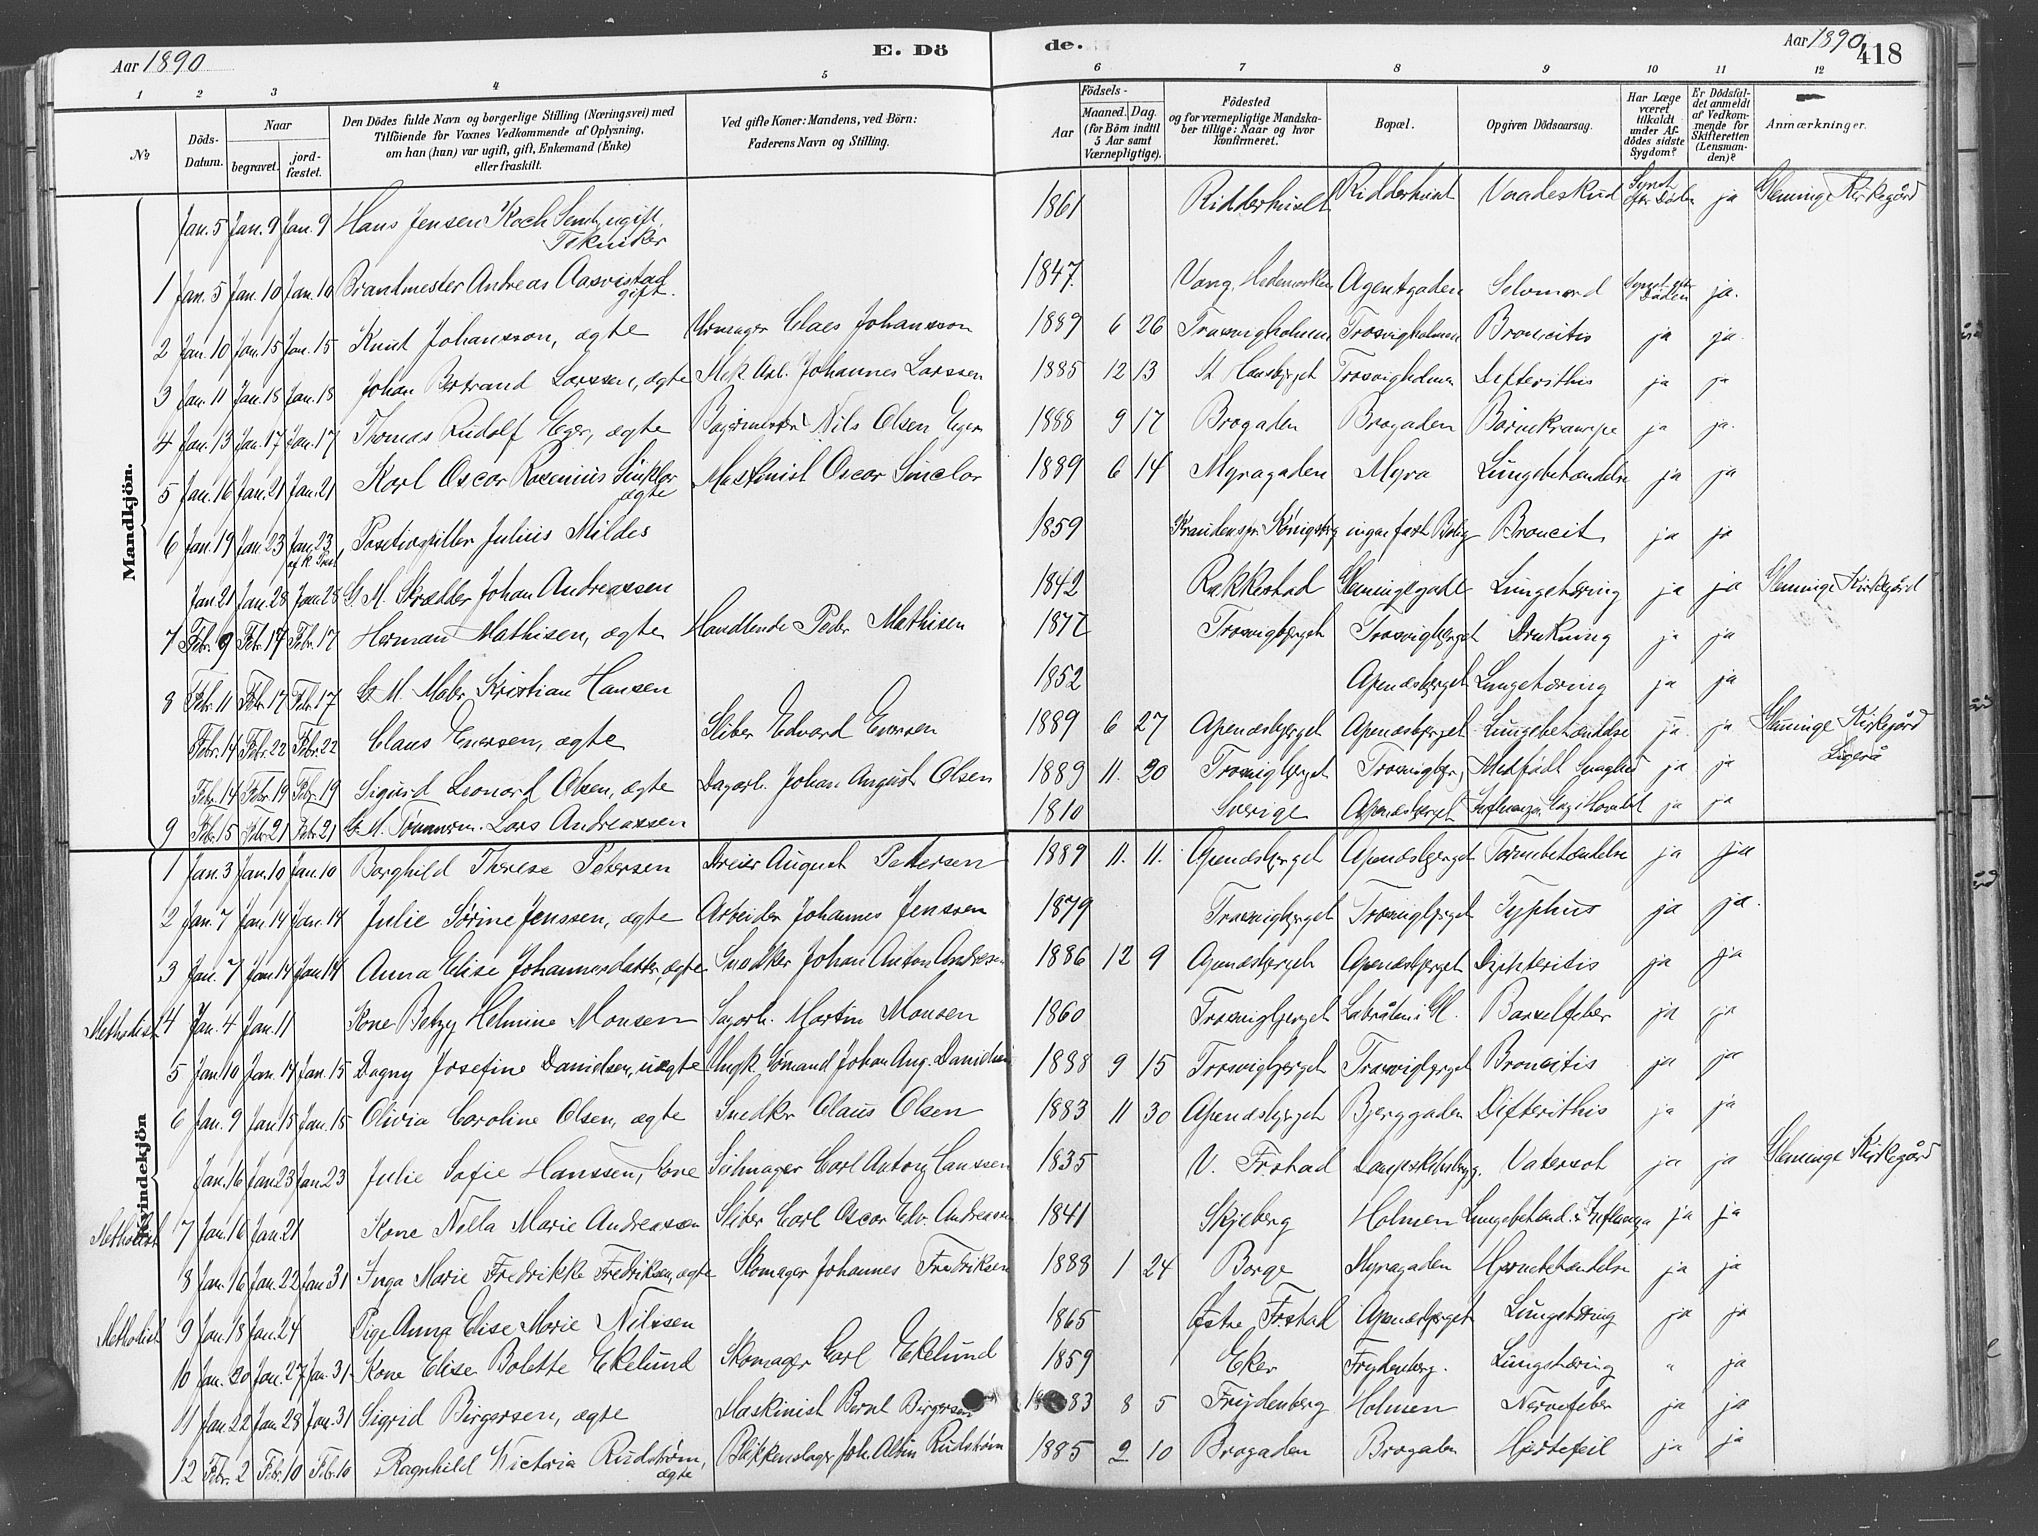 Aar 1890 E. Döde. Aar 1890 418
1 2 3 4 5 6 7 8 9 10 11 12
№ Döds-Datum. Naar begravet. jordfæstet. Den Dödes fulde Navn og borgerlige Stilling (Næringsvei) med Tilföiende for Voxnes Vedkommende af Oplysning, om han (hun) var ugift, gift, Enkemand (Enke) eller fraskilt. Ved gifte Koner: Mandens, ved Börn: Faderens Navn og Stilling. Födsels- Aar Maaned. Dag. (for Börn indtil 5 Aar samt Værnepligtige). Födested og for værnepligtige Mandskaber tillige: Naar og hvor konfirmeret. Bopæl. Opgiven Dödsaarsag. Har Læge været tilkaldt under Afdödes sidste Sygdom? Er Dödsfaldet anmeldt af Vedkommende for Skifteretten (Lensmanden)? Anmærkninger.
Mandkjön.
Jan. 5 Jan. 9 Jan. 9 Hans Jensen Koch ugift, Tekniker 1861 Ridderhuset Ridderhuset Vaadeskud Synet efter Döden ja Glemminge Kirkegård
1 Jan. 5 Jan. 10 Jan. 10 Brandmester Andreas Aasvistad gift. 1847. Vang, Hedemarken Agentgaden Selvmord Synet efter Döden ja.
2 Jan. 10 Jan. 15 Jan. 15 Knut Johansson, ægte Urmager Claes Johansson 1889 6 26 Trosvigholmen Trosvigholmen Broncitis ja ja.
3 Jan. 11 Jan. 18 Jan. 18 Johan Bertrand Larssen, ægte Mek. Arb. Johannes Larssen 1885 12 13 St. Hansbjerget Trosvigholmen Difterithis ja ja
4 Jan. 13 Jan. 17 Jan. 17 Thomas Rudolf Eger, ægte Bagermester Nils Olsen Eger 1888 9 17 Brogaden Brogaden Börnekrampe ja ja.
5 Jan. 16 Jan. 21 Jan. 21 Karl Oscar Rosenius Sinklar ægte Maskinist Oscar Sinclar 1889 6 14 Myragaden Myra Lungebetændelse ja ja
6 Jan. 19 Jan. 23 Jan. 23 Positivspiller Julius Mildes 1859 Königsberg ingen fast Bolig Broncit. ja ja
Jan. 21 Jan. 28 Jan. 28 G. M. Skrædder Johan Andreassen 1842 Rakkestad Glemmingegade Lungetæring ja ja Glemminge Kirkegård
7 Febr. 9 Febr. 17 Febr. 17 Herman Mathisen, ægte Handlende Peder Mathisen 1877 Trosvigbjerget Trosvigbjerget Drukning ja ja
8 Febr. 11 Febr. 17 Febr. 17 G. M. Maler Kristian Hansen 1852 Apenæsbjerget Lungetæring ja ja
Febr. 14 Febr. 22 Febr. 22 Claus Evensen, ægte Sliber Edvard Evensen 1889 6 27 Apenæsbjerget Apenæsbjerget Lungebetændelse ja ja Glemminge Kirkegård
Febr. 14 Febr. 19 Febr. 19 Sigurd Leonard Olsen, ægte Dagarb. Johan August Olsen 1889 11. 20 Trosvigbjerget Trosvigbjer, Medfödt Svaghed ja ja Ligeså
9 Feb. 15 Febr. 21 Febr. 21 G. M. Tömmerm. Lars Andreassen 1810 Sverige Apenæsbjerget Influenza, Slag i Hovedet ja ja
Kvindekjön
1 Jan. 3 Jan. 10 Jan. 10 Borghild Therese Petersen Dreier August Petersen 1889 11. 11. Apenæsbjerget Apenæsbjerget Tarmebetændelse ja ja
2 Jan. 7 Jan. 14 Jan. 14 Julie Sörine Jenssen, ægte Arbeider Johannes Jenssen 1879 Trosvigbjerget Trosvigbjerget Typhus ja ja.
3 Jan. 7 Jan. 14 Jan. 14 Anna Elise Johannesdatter, ægte Snedker Johan Anton Andresen 1886 12 9 Apenæsbjerget Apenæsbjerget Diphteritis ja ja
Methodist 4 Jan. 4 Jan. 11 Kone Betzy Helmine Monsen Sagarb. Martin Monsen 1860 Trosvigbjerget Labråten i Gl. Barselfeber ja ja
5 Jan. 10 Jan. 14 Jan. 15 Dagny Josefine Danielsen, uægte Ungk. Sömand Johan Aug. Danielsen 1888 9 15 Trosvigbjerget Trosvigbjerget Broncitis ja ja
6 Jan. 9 Jan. 15 Jan. 15 Olivia Caroline Olsen, ægte Snedker Claus Olsen 1883 11 30 Apenæsbjerget Bjerggaden Difterithis ja ja
Jan. 16 Jan. 23 Jan. 23 Julie Sofie Hanssen, Kone Seilmager Carl Anton Hanssen 1835 V. Frstad Vatersot ja ja Glemminge Kirkegård
Methodist 7 Jan. 16 Jan. 21 Kone Nella Marie Andreasen Sliber Carl Oscar Edv. Andreasen 1841 Skjeberg Holmen Lungebetænd. & Influenza ja ja
8 Jan. 16 Jan. 22 Jan. 31 Inga Marie Fredrikke Fredriksen, ægte Skomager Johannes Fredriksen 1888 1 24 Borge Myragaden Hjernebetændelse ja ja
Methodist 9 Jan. 18 Jan. 24 Pige Anna Elise Marie Nilssen 1865 Östre Frstad Apenæsbjerget Lungetæring ja ja
10 Jan. 20 Jan. 27 Jan. 31 Kone Elise Bolette Ekelund Skomager Carl Ekelund 1859 Eker Frydenberg. Lungetæring " ja
11 Jan. 22 Jan. 28 Jan. 31 Sigrid Birgersen, ægte Maskinist Bernt Birgersen 1883 8 5 Frydenberg Holmen Nervefeber ja ja
12 Febr. 2 Febr. 10 Febr. 10 Ragnhild Victoria Rudström, ægte Blikkenslager Joh. Albin Rudström 1885 2 10 Brogaden Brogaden Hjertefeil ja ja